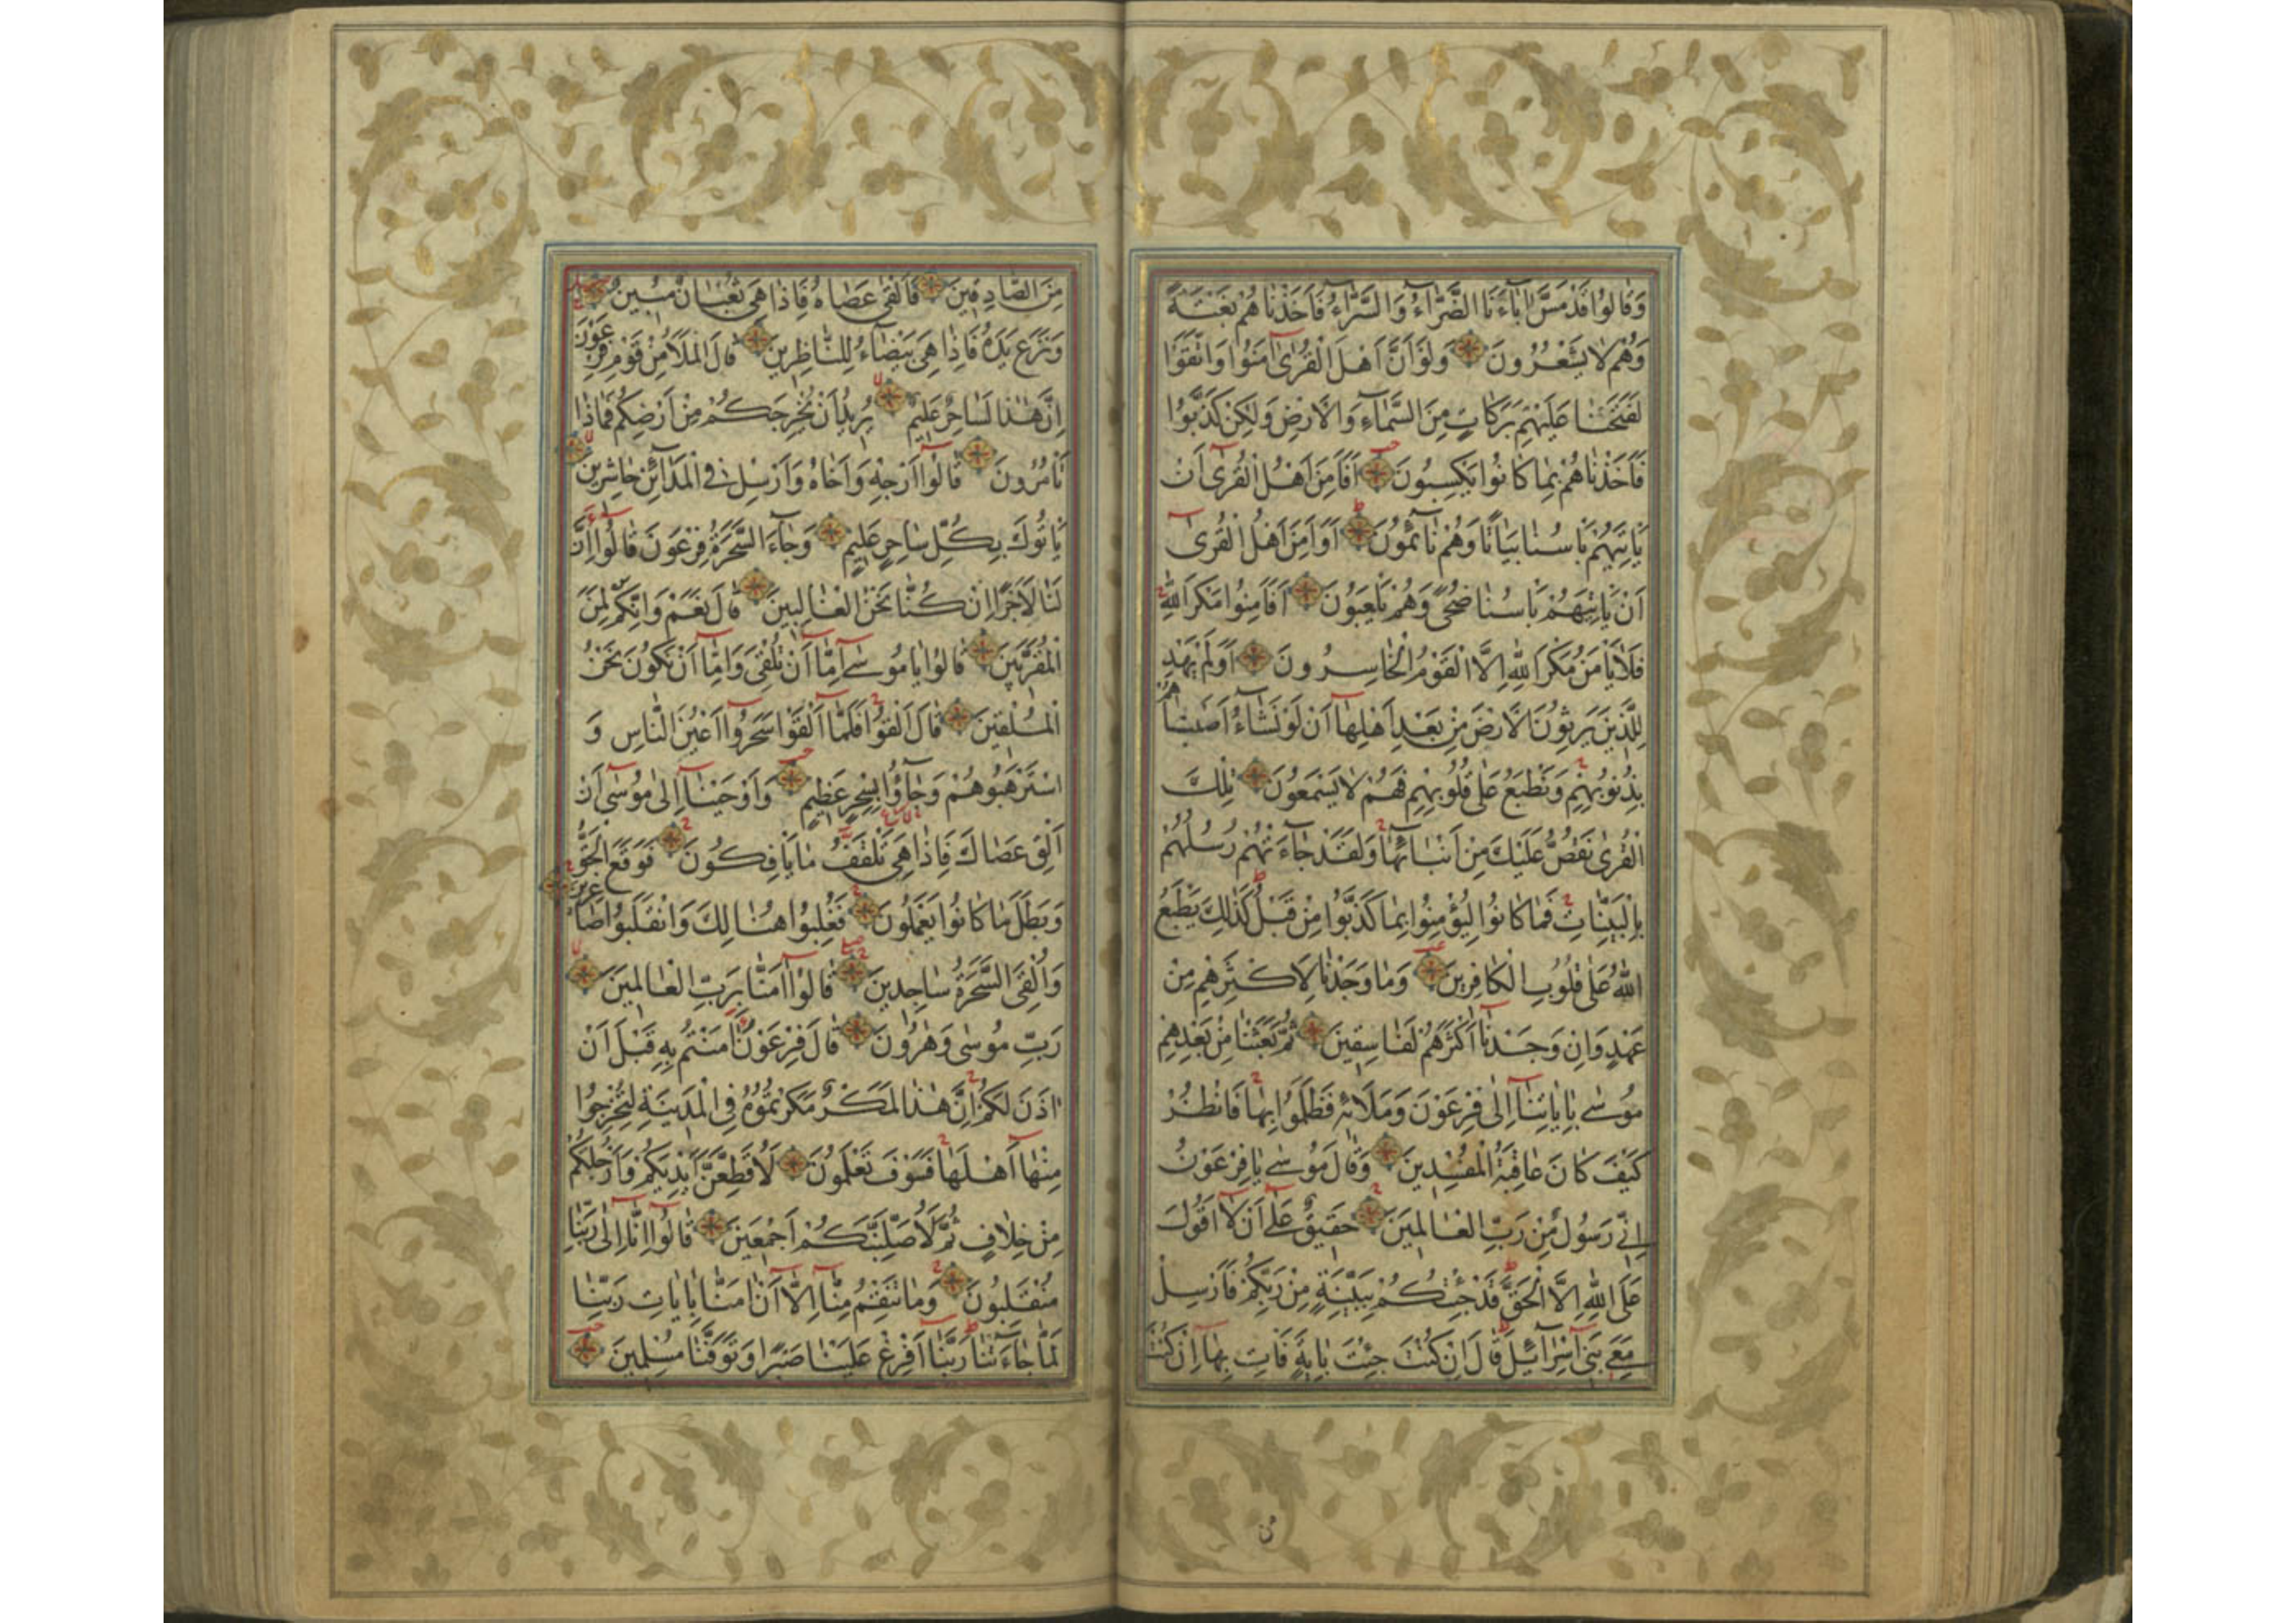 وَقَالُوا قَدْ مَسَّ اٰبَاءَنَا الضَّرَّاءُ وَالسَّرَّاءُ فَاَخَذْنَاهُمْ بَغْتَةً
وَهُمْ لَا يَشْعُرُونَ وَلَوْ اَنَّ اَهْلَ الْقُرٰى اٰمَنُوا وَاتَّقَوْا
لَفَتَحْنَا عَلَيْهِمْ بَرَكَاتٍ مِنَ السَّمَاءِ وَالْاَرْضِ وَلٰكِنْ كَذَّبُوا
فَاَخَذْنَاهُمْ بِمَا كَانُوا يَكْسِبُونَ اَفَاَمِنَ اَهْلُ الْقُرٰى اَنْ
يَاْتِيَهُمْ بَاْسُنَا بَيَاتًا وَهُمْ نَائِمُونَ اَوَاَمِنَ اَهْلُ الْقُرٰى
اَنْ يَاْتِيَهُمْ بَاْسُنَا ضُحًى وَهُمْ يَلْعَبُونَ اَفَاَمِنُوا مَكْرَ اللّٰهِ
فَلَا يَاْمَنُ مَكْرَ اللّٰهِ اِلَّا الْقَوْمُ الْخَاسِرُونَ اَوَلَمْ يَهْدِ
لِلَّذِينَ يَرِثُونَ الْاَرْضَ مِنْ بَعْدِ اَهْلِهَا اَنْ لَوْ نَشَاءُ اَصَبْنَاهُمْ
بِذُنُوبِهِمْ وَنَطْبَعُ عَلٰى قُلُوبِهِمْ فَهُمْ لَا يَسْمَعُونَ تِلْكَ
الْقُرٰى نَقُصُّ عَلَيْكَ مِنْ اَنْبَائِهَا وَلَقَدْ جَاءَتْهُمْ رُسُلُهُمْ
بِالْبَيِّنَاتِ فَمَا كَانُوا لِيُؤْمِنُوا بِمَا كَذَّبُوا مِنْ قَبْلُ كَذٰلِكَ يَطْبَعُ
اللّٰهُ عَلٰى قُلُوبِ الْكَافِرِينَ وَمَا وَجَدْنَا لِاَكْثَرِهِمْ مِنْ
عَهْدٍ وَاِنْ وَجَدْنَا اَكْثَرَهُمْ لَفَاسِقِينَ ثُمَّ بَعَثْنَا مِنْ بَعْدِهِمْ
مُوسٰى بِاٰيَاتِنَا اِلٰى فِرْعَوْنَ وَمَلَائِهِ فَظَلَمُوا بِهَا فَانْظُرْ
كَيْفَ كَانَ عَاقِبَةُ الْمُفْسِدِينَ وَقَالَ مُوسٰى يَا فِرْعَوْنُ
اِنِّي رَسُولٌ مِنْ رَبِّ الْعَالَمِينَ حَقِيقٌ عَلٰى اَنْ لَا اَقُولَ
عَلَى اللّٰهِ اِلَّا الْحَقَّ قَدْ جِئْتُكُمْ بِبَيِّنَةٍ مِنْ رَبِّكُمْ فَاَرْسِلْ
مَعِيَ بَنِي اِسْرَائِيلَ قَالَ اِنْ كُنْتَ جِئْتَ بِاٰيَةٍ فَاْتِ بِهَا اِنْ كُنْتَ
من
مِنَ الصَّادِقِينَ فَاَلْقٰى عَصَاهُ فَاِذَا هِيَ ثُعْبَانٌ مُبِينٌ
وَنَزَعَ يَدَهُ فَاِذَا هِيَ بَيْضَاءُ لِلنَّاظِرِينَ قَالَ الْمَلَاُ مِنْ قَوْمِ فِرْعَوْنَ
اِنَّ هٰذَا لَسَاحِرٌ عَلِيمٌ يُرِيدُ اَنْ يُخْرِجَكُمْ مِنْ اَرْضِكُمْ فَمَاذَا
تَاْمُرُونَ قَالُوا اَرْجِهْ وَاَخَاهُ وَاَرْسِلْ فِي الْمَدَائِنِ حَاشِرِينَ
يَاْتُوكَ بِكُلِّ سَاحِرٍ عَلِيمٍ وَجَاءَ السَّحَرَةُ فِرْعَوْنَ قَالُوا اِنَّ
لَنَا لَاَجْرًا اِنْ كُنَّا نَحْنُ الْغَالِبِينَ قَالَ نَعَمْ وَاِنَّكُمْ لَمِنَ
الْمُقَرَّبِينَ قَالُوا يَا مُوسٰى اِمَّا اَنْ تُلْقِيَ وَاِمَّا اَنْ نَكُونَ نَحْنُ
الْمُلْقِينَ قَالَ اَلْقُوا فَلَمَّا اَلْقَوْا سَحَرُوا اَعْيُنَ النَّاسِ وَ
اسْتَرْهَبُوهُمْ وَجَاؤُا بِسِحْرٍ عَظِيمٍ وَاَوْحَيْنَا اِلٰى مُوسٰى اَنْ
اَلْقِ عَصَاكَ فَاِذَا هِيَ تَلْقَفُ مَا يَاْفِكُونَ فَوَقَعَ الْحَقُّ
وَبَطَلَ مَا كَانُوا يَعْمَلُونَ فَغُلِبُوا هُنَالِكَ وَانْقَلَبُوا صَاغِرِينَ
وَاُلْقِيَ السَّحَرَةُ سَاجِدِينَ قَالُوا اٰمَنَّا بِرَبِّ الْعَالَمِينَ
رَبِّ مُوسٰى وَهٰرُونَ قَالَ فِرْعَوْنُ اٰمَنْتُمْ بِهِ قَبْلَ اَنْ
اٰذَنَ لَكُمْ اِنَّ هٰذَا لَمَكْرٌ مَكَرْتُمُوهُ فِي الْمَدِينَةِ لِتُخْرِجُوا
مِنْهَا اَهْلَهَا فَسَوْفَ تَعْلَمُونَ لَاُقَطِّعَنَّ اَيْدِيَكُمْ وَاَرْجُلَكُمْ
مِنْ خِلَافٍ ثُمَّ لَاُصَلِّبَنَّكُمْ اَجْمَعِينَ قَالُوا اِنَّا اِلٰى رَبِّنَا
مُنْقَلِبُونَ وَمَا تَنْقِمُ مِنَّا اِلَّا اَنْ اٰمَنَّا بِاٰيَاتِ رَبِّنَا
لَمَّا جَاءَتْنَا رَبَّنَا اَفْرِغْ عَلَيْنَا صَبْرًا وَتَوَفَّنَا مُسْلِمِينَ